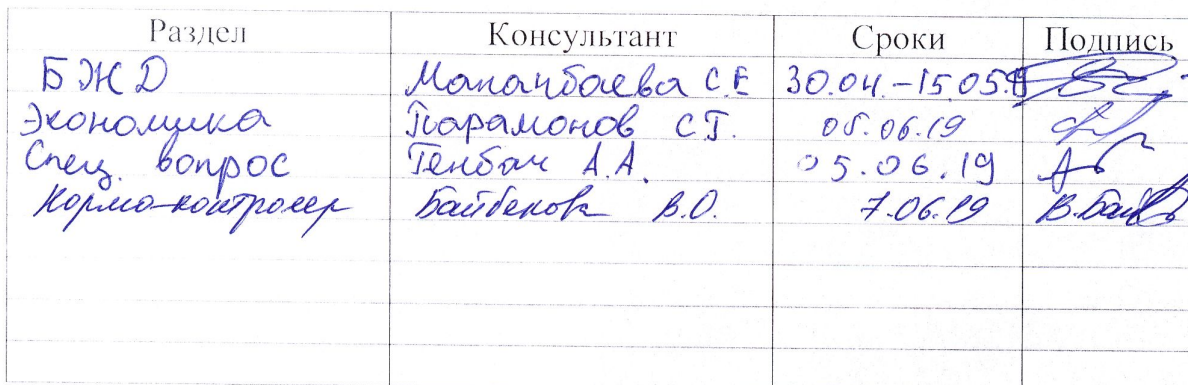 Раздел Консультант Сроки Подпись
БЖД Мананбаева С.Е 30.04.-15.05.19
Экономика Парамонов С.Г. 05.06.19
Спец. вопрос Генбач А.А. 05.06.19
Нормо-контролер Байбекова В.О. 7.06.19 В.Бай